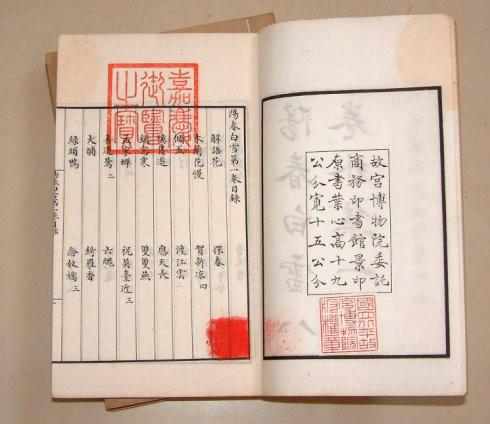 故宮博物院委託
商務印書館景印
原書葉心高十九
公分寬十五公分
嘉慶
御覽
之寶
陽春白雪第一卷目錄
解語花 探春
木蘭花慢 賀新涼四
渡江雲
憶舊遊 應天長
鎖窗寒 雙雙燕
祝英臺近三
喜遷鶯二 六醜
大酺 綺羅香
綠頭鴨 念奴嬌三